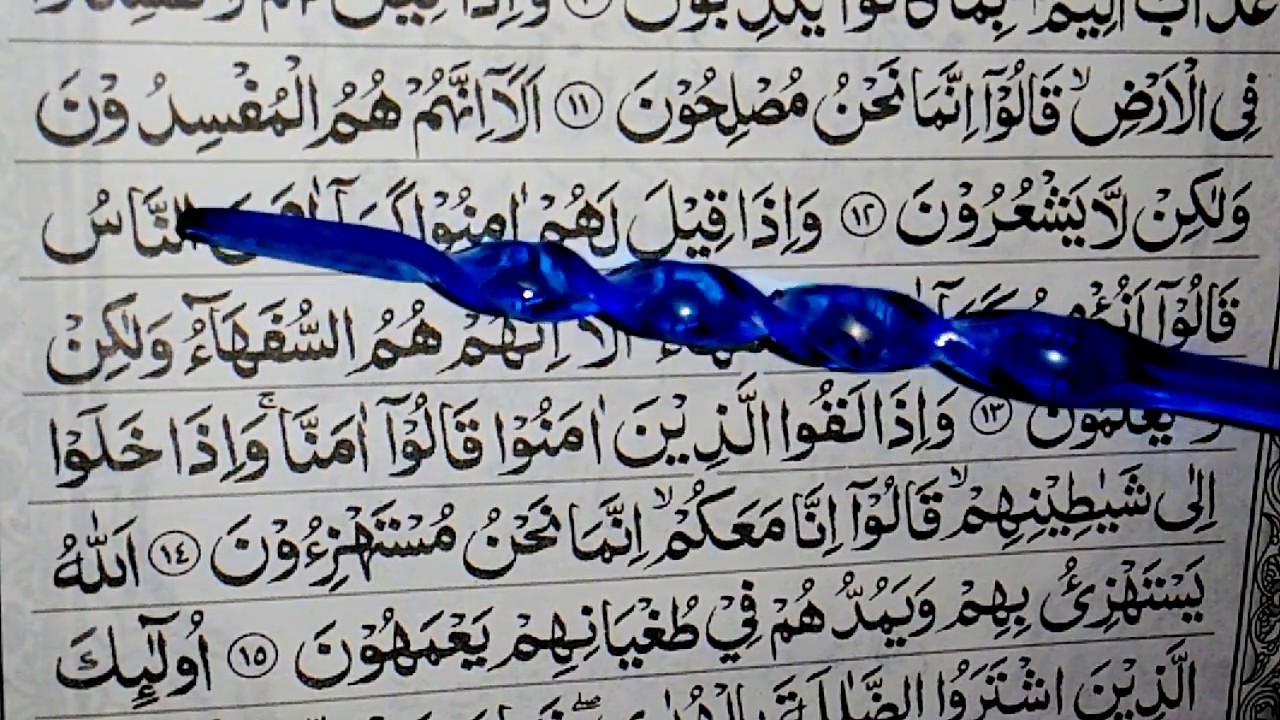 عَذَابٌ اَلِيْمٌۢ بِمَا كَانُوْا يَكْذِبُوْنَ ۝١٠ وَاِذَا قِيْلَ لَهُمْ
فِى الْاَرْضِ ۙ قَالُوْٓا اِنَّمَا نَحْنُ مُصْلِحُوْنَ ۝١١ اَلَآ اِنَّهُمْ هُمُ الْمُفْسِدُوْنَ
وَلٰكِنْ لَّا يَشْعُرُوْنَ ۝١٢ وَاِذَا قِيْلَ لَهُمْ اٰمِنُوْا كَمَآ اٰمَنَ النَّاسُ
قَالُوْٓا اَنُؤْمِنُ كَمَآ اَلَآ اِنَّهُمْ هُمُ السُّفَهَآءُ وَلٰكِنْ
يَعْلَمُوْنَ ۝١٣ وَاِذَا لَقُوا الَّذِيْنَ اٰمَنُوْا قَالُوْٓا اٰمَنَّا ۚ وَاِذَا خَلَوْا
اِلٰى شَيٰطِيْنِهِمْ ۙ قَالُوْٓا اِنَّا مَعَكُمْ ۙ اِنَّمَا نَحْنُ مُسْتَهْزِءُوْنَ ۝١٤ اَللّٰهُ
يَسْتَهْزِئُ بِهِمْ وَيَمُدُّهُمْ فِيْ طُغْيَانِهِمْ يَعْمَهُوْنَ ۝١٥ اُولٰٓئِكَ
الَّذِيْنَ اشْتَرَوُا الضَّلٰلَةَ بِالْهُدٰى